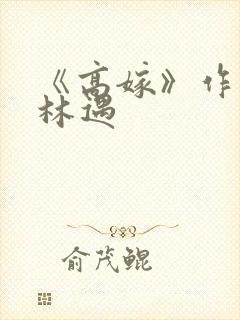 《高嫁》作
林遇
俞茂鲲